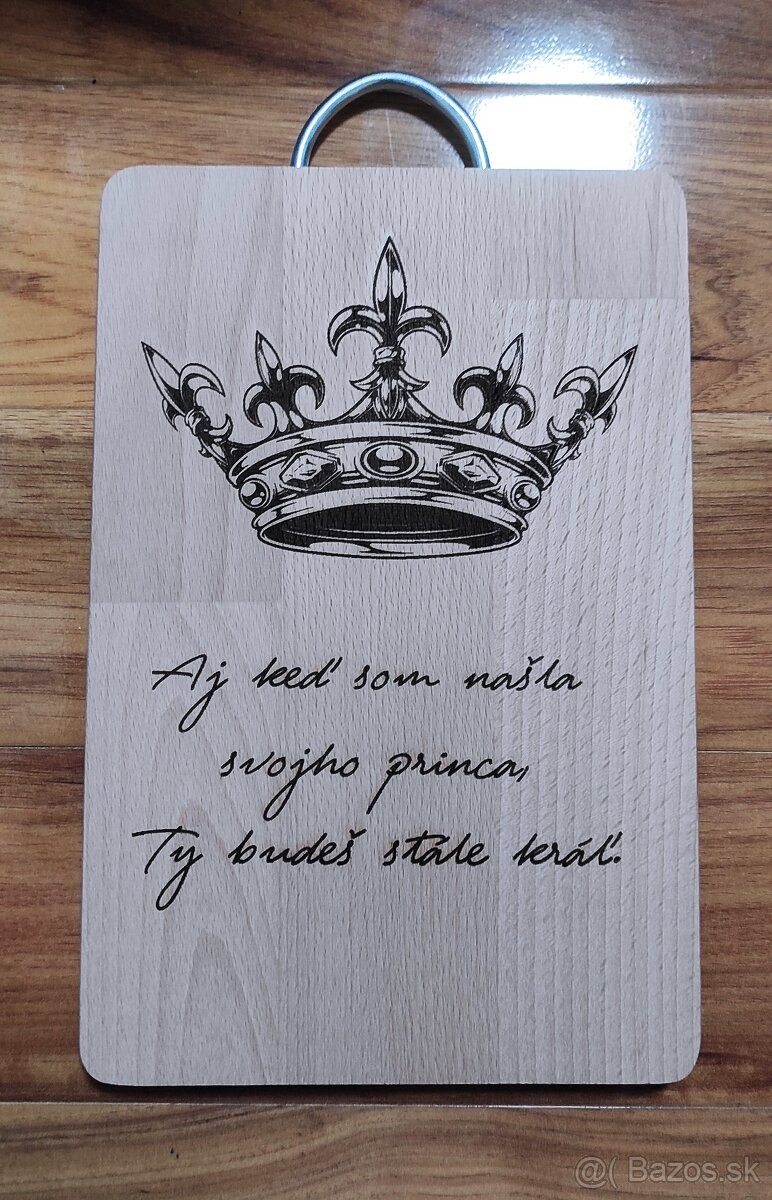 Aj keď som našla
svojho princa,
Ty budeš stále kráľ.
@( Bazos.sk